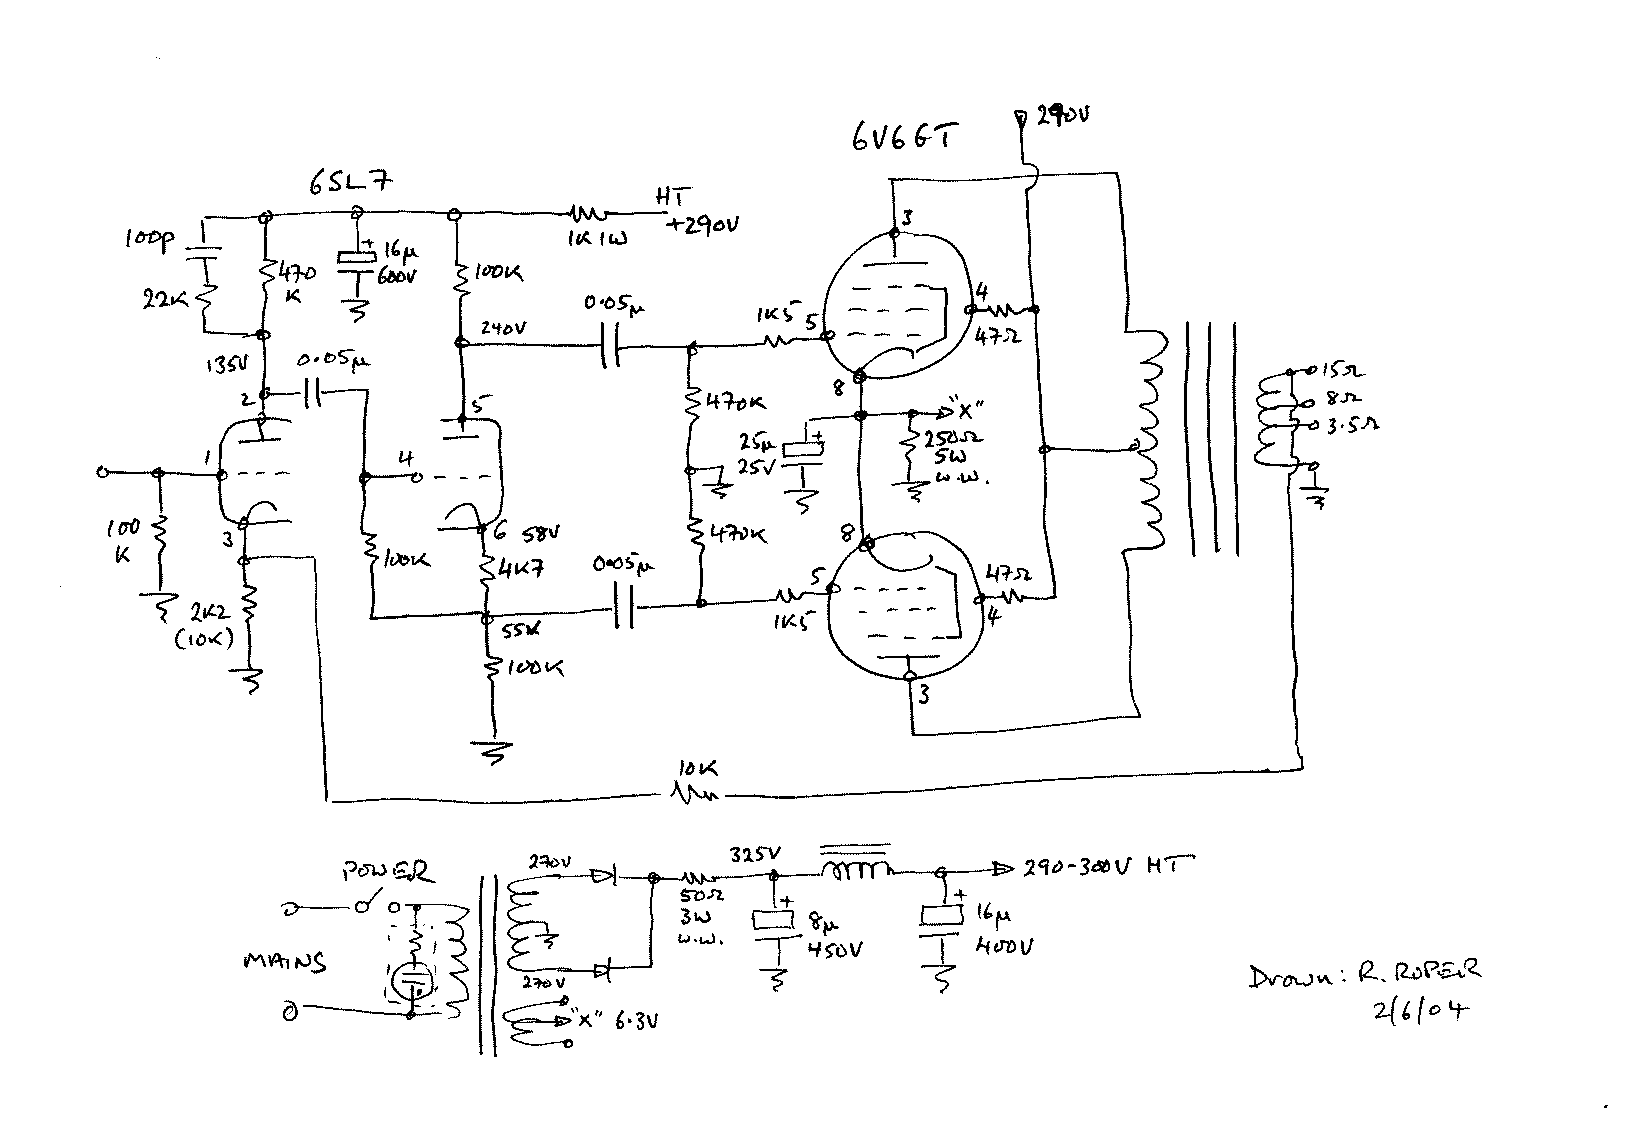 6V6GT
290V
6SL7
HT
+290V
1K 1W
100p
22K
470
K
+
16µ
600V
100K
0.05µ
240V
1K5
5
3
4
47Ω
135V
0.05µ
2
5
470K
8
"X"
+
25µ
25V
250Ω
5W
W.W.
15Ω
8Ω
3.5Ω
1
4
100
K
3
6
58V
100K
4K7
470K
8
0.05µ
5
47Ω
4
2K2
(10K)
55V
1K5
100K
3
10K
POWER
MAINS
270V
270V
"X" 6.3V
50Ω
3W
W.W.
325V
+
8µ
450V
+
16µ
400V
290-300V HT
Drawn: R. ROPER
2/6/04